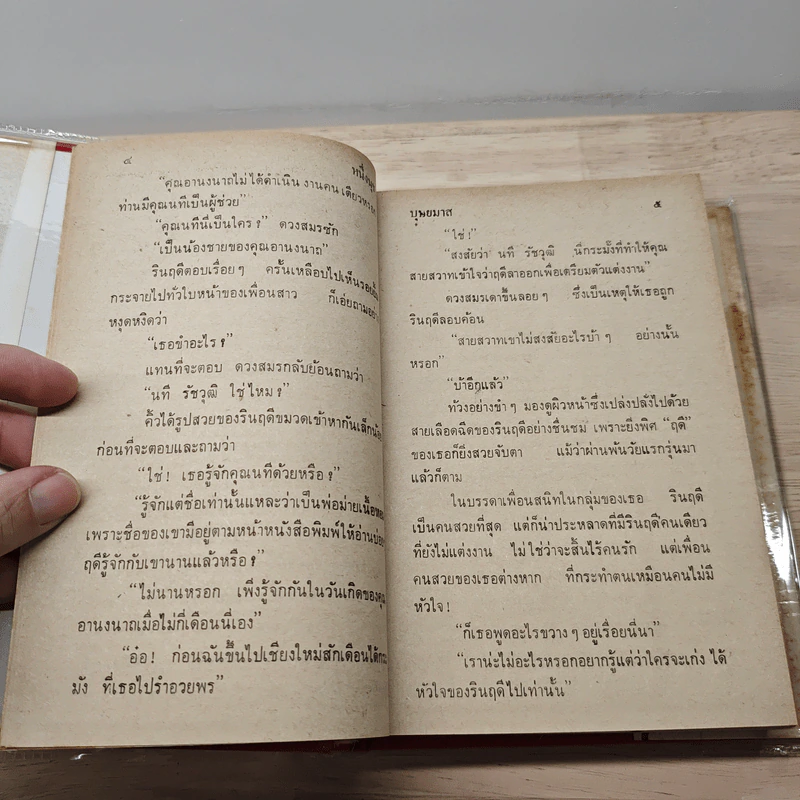 ๔
“คุณอานงนาถไม่ได้ดำเนิน งานคน เดียวหรอก
ท่านมีคุณนทีเป็นผู้ช่วย”
“คุณนทีนี่เป็นใคร?” ดวงสมรซัก
“เป็นน้องชายของคุณอานงนาถ”
รินฤดีตอบเรื่อยๆ ครั้นเหลือบไปเห็นรอยยิ้ม
กระจายไปทั่วใบหน้าของเพื่อนสาว ก็เอ่ยถามอย่าง
หงุดหงิดว่า
“เธอขำอะไร?”
แทนที่จะตอบ ดวงสมรกลับย้อนถามว่า
“นที รัชวุฒิ ใช่ไหม?”
คิ้วได้รูปสวยของรินฤดีขมวดเข้าหากันเล็กน้อย
ก่อนที่จะตอบและถามว่า
“ใช่! เธอรู้จักคุณนทีด้วยหรือ?”
“รู้จักแต่ชื่อเท่านั้นแหละว่าเป็นพ่อม่ายเนื้อหอม
เพราะชื่อของเขามีอยู่ตามหน้าหนังสือพิมพ์ให้อ่านบ่อยๆ
ฤดีรู้จักกับเขานานแล้วหรือ?”
“ไม่นานหรอก เพิ่งรู้จักกันในวันเกิดของคุณ
อานงนาถเมื่อไม่กี่เดือนนี่เอง”
“อ๋อ! ก่อนฉันขึ้นไปเชียงใหม่สักเดือนได้กระ
มัง ที่เธอไปรำอวยพร”
บุษยมาส ๕
“ใช่!”
“สงสัยว่า นที รัชวุฒิ นี่กระมังที่ทำให้คุณ
สายสวาทเข้าใจว่าฤดีลาออกเพื่อเตรียมตัวแต่งงาน”
ดวงสมรเดาขึ้นลอยๆ ซึ่งเป็นเหตุให้เธอถูก
รินฤดีลอบค้อน
“สายสวาทเขาไม่สงสัยอะไรบ้าๆ อย่างนั้น
หรอก”
“บ้าอีกแล้ว”
ท้วงอย่างขำๆ มองดูผิวหน้าซึ่งเปล่งปลั่งไปด้วย
สายเลือดฉีดของรินฤดีอย่างชื่นชม เพราะยิ่งพิศ “ฤดี”
ของเธอก็ยิ่งสวยจับตา แม้ว่าผ่านพ้นวัยแรกรุ่นมา
แล้วก็ตาม
ในบรรดาเพื่อนสนิทในกลุ่มของเธอ รินฤดี
เป็นคนสวยที่สุด แต่ก็น่าประหลาดที่มีรินฤดีคนเดียว
ที่ยังไม่แต่งงาน ไม่ใช่ว่าจะสิ้นไร้คนรัก แต่เพื่อน
คนสวยของเธอต่างหาก ที่กระทำตนเหมือนคนไม่มี
หัวใจ!
“ก็เธอพูดอะไรขวางๆอยู่เรื่อยนี่นา”
“เราน่ะไม่อะไรหรอกอยากรู้แต่ว่าใครจะเก่ง ได้
หัวใจของรินฤดีไปเท่านั้น”